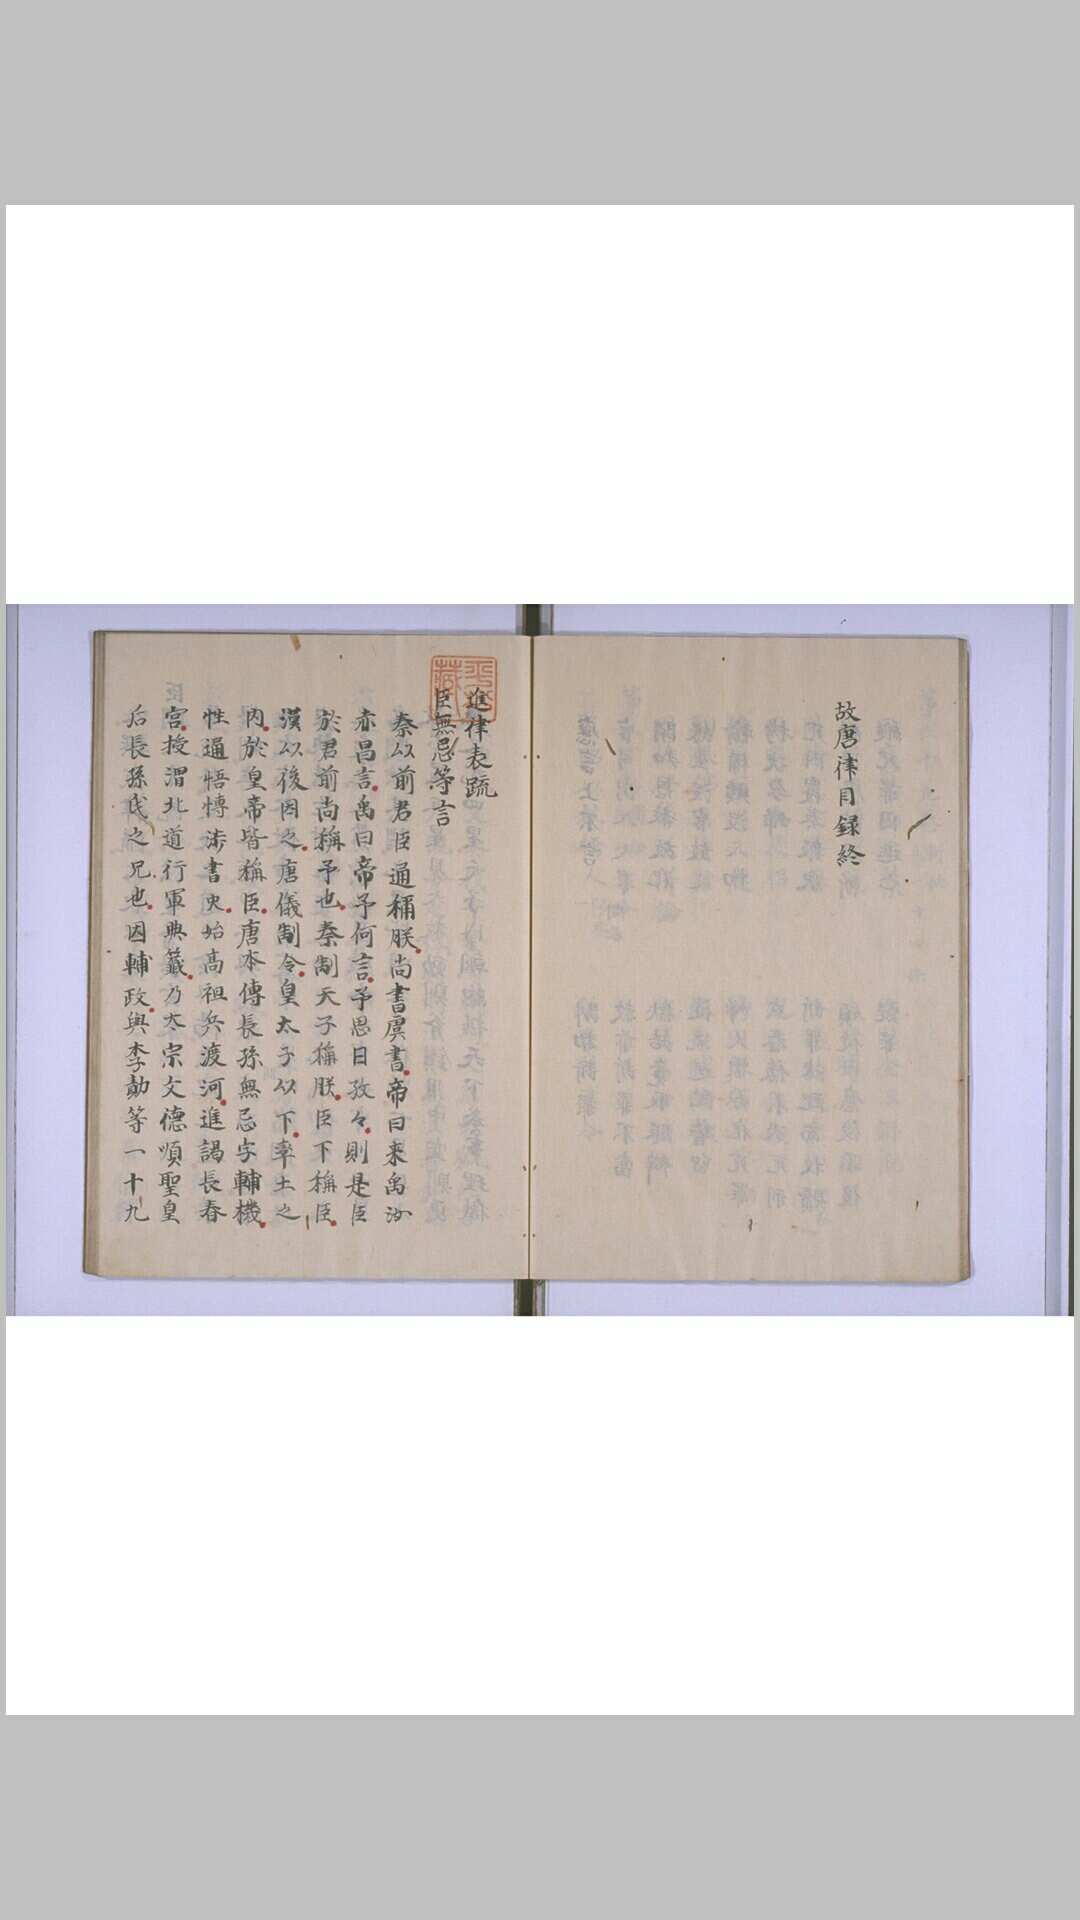 故唐律目録終
進律表疏
臣無忌等言
秦以前君臣通稱朕尚書虞書帝曰来禹汝
亦昌言禹曰帝予何言予思日孜々則是臣
於君前尚稱予也秦制天子稱朕臣下稱臣
漢以後因之唐儀制令皇太子以下率土之
内於皇帝皆稱臣唐本傳長孫無忌字輔機
性通悟愽渉書史始高祖兵渡河進謁長春
宮授渭北道行軍典籖乃太宗文德順聖皇
后長孫氏之兄也因輔政與李勣等一十九